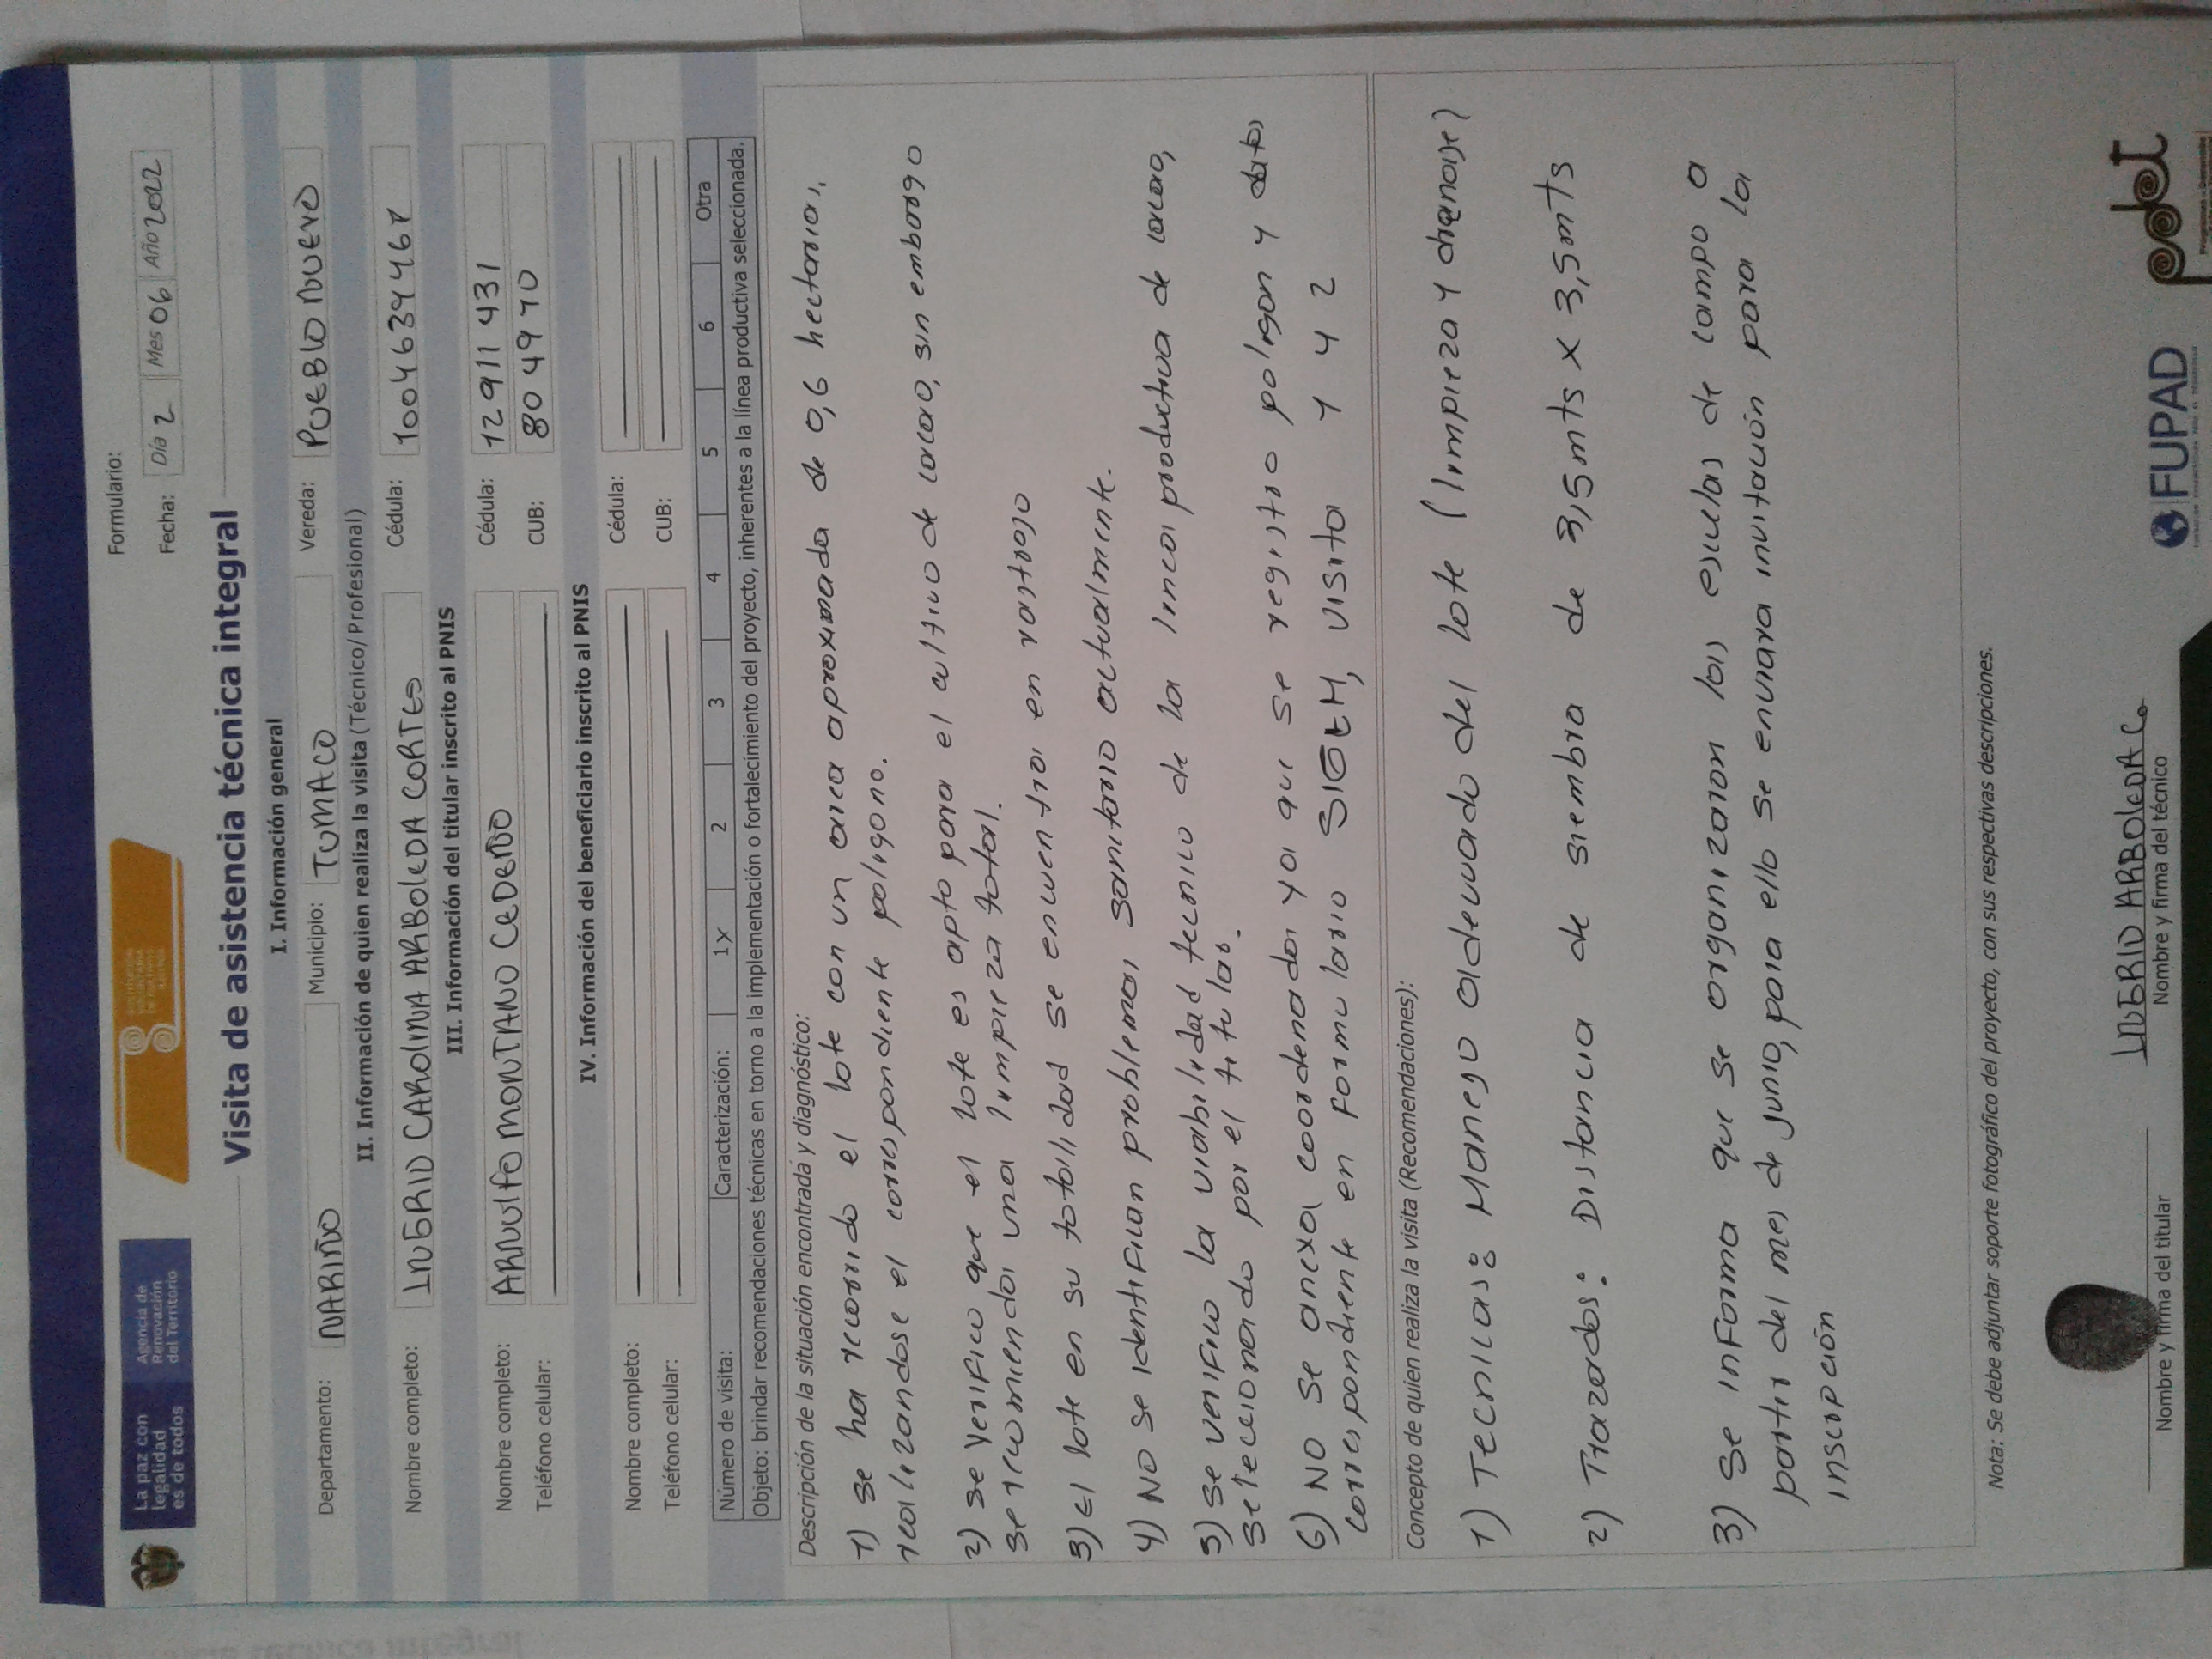 La paz con
legalidad
es de todos
Agencia de
Renovación
del Territorio
Formulario:
Fecha: Día 2 Mes 06 Año 2022
Visita de asistencia técnica integral
I. Información general
Departamento: NARIÑO Municipio: TUMACO Vereda: PUEBLO NUEVO
II. Información de quien realiza la visita (Técnico/Profesional)
Nombre completo: INGRID CAROLINA ARBOLEDA CORTES Cédula:
III. Información del titular inscrito al PNIS
Nombre completo: ARNULFO MONTAÑO CEDEÑO Cédula: 12911431
Teléfono celular: CUB: 804970
IV. Información del beneficiario inscrito al PNIS
Nombre completo: Cédula:
Teléfono celular: CUB:
Número de visita: Caracterización: 1 x 2 3 4 5 6 Otra
Objeto: brindar recomendaciones técnicas en torno a la implementación o fortalecimiento del proyecto, inherentes a la línea productiva seleccionada.
Descripción de la situación encontrada y diagnóstico:
1) se ha recorrido el lote con un area aproximada de 0,6 hectarias,
realizandose el correspondiente poligono.
2) se verifico que el lote es apto para el cultivo de cacao, sin embargo
se recomienda una limpieza total.
3) El lote en su totalidad se encuentra en rastrojo
4) NO se identifican problemas sanitario actualmente.
5) se verifico la viabilidad tecnico de la linea productiva de cacao,
seleccionado por el titular.
6) NO se anexa coordenada ya que se registro poligon y datos
correspondiente en formulario SIGEH, visita 1 y 2
Concepto de quien realiza la visita (Recomendaciones):
1) Tecnicas: Manejo aldecuado del lote (limpieza y drenaje)
2) Trazados: Distancia de siembra de 3,5mts x 3,5mts
3) Se informa que se organizaran las escuelas de campo a
partir del mes de junio, para ello se enviara invitación para la
inscrpción
Nota: Se debe adjuntar soporte fotográfico del proyecto, con sus respectivas descripciones.
INGRID ARBOLEDA C.
Nombre y firma del titular Nombre y firma del técnico
FUPAD
pdet